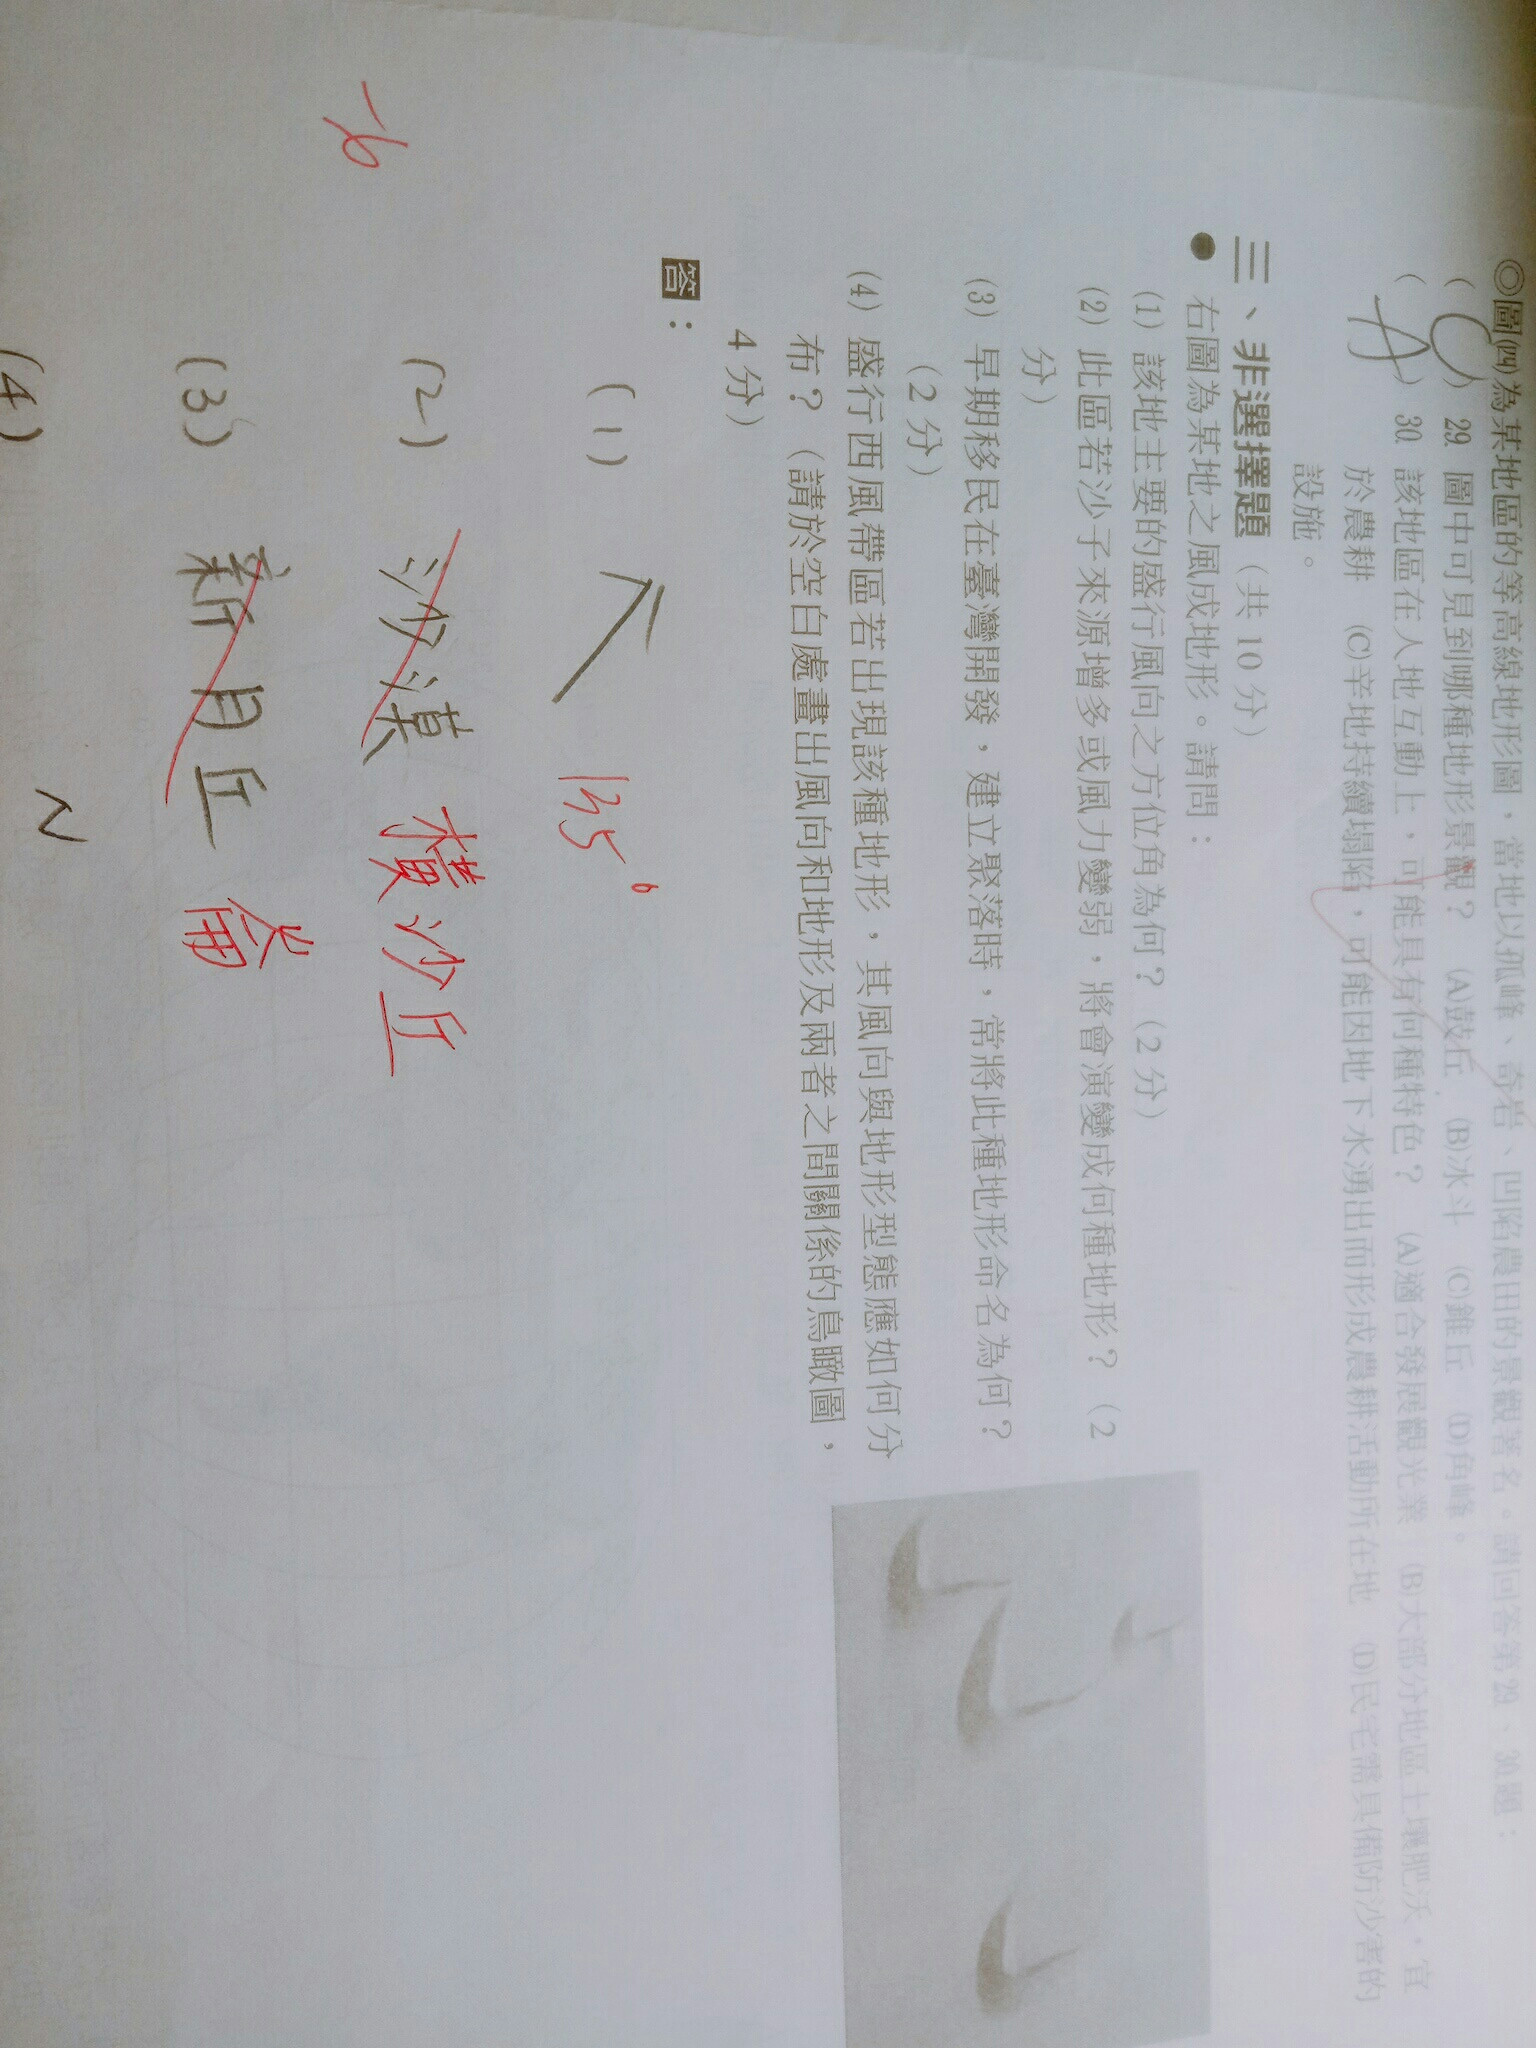 ◎圖(四)為某地區的等高線地形圖，當地以孤峰、奇岩、凹陷農田的景觀著名。請回答第29、30題：
( C ) 29. 圖中可見到哪種地形景觀？ (A)鼓丘 (B)冰斗 (C)錐丘 (D)角峰。
( A ) 30. 該地區在人地互動上，可能具有何種特色？ (A)適合發展觀光業 (B)大部分地區土壤肥沃，宜
於農耕 (C)辛地持續塌陷，可能因地下水湧出而形成農耕活動所在地 (D)民宅需具備防沙害的
設施。
三、非選擇題（共 10 分）
● 右圖為某地之風成地形。請問：
(1) 該地主要的盛行風向之方位角為何？（2 分）
(2) 此區若沙子來源增多或風力變弱，將會演變成何種地形？（2
分）
(3) 早期移民在臺灣開發，建立聚落時，常將此種地形命名為何？
（2 分）
(4) 盛行西風帶區若出現該種地形，其風向與地形型態應如何分
布？（請於空白處畫出風向和地形及兩者之間關係的鳥瞰圖，
4 分）
答：
(1) 135°
(2) 沙漠 橫沙丘
(3) 新月丘 崙
(4) N
-6